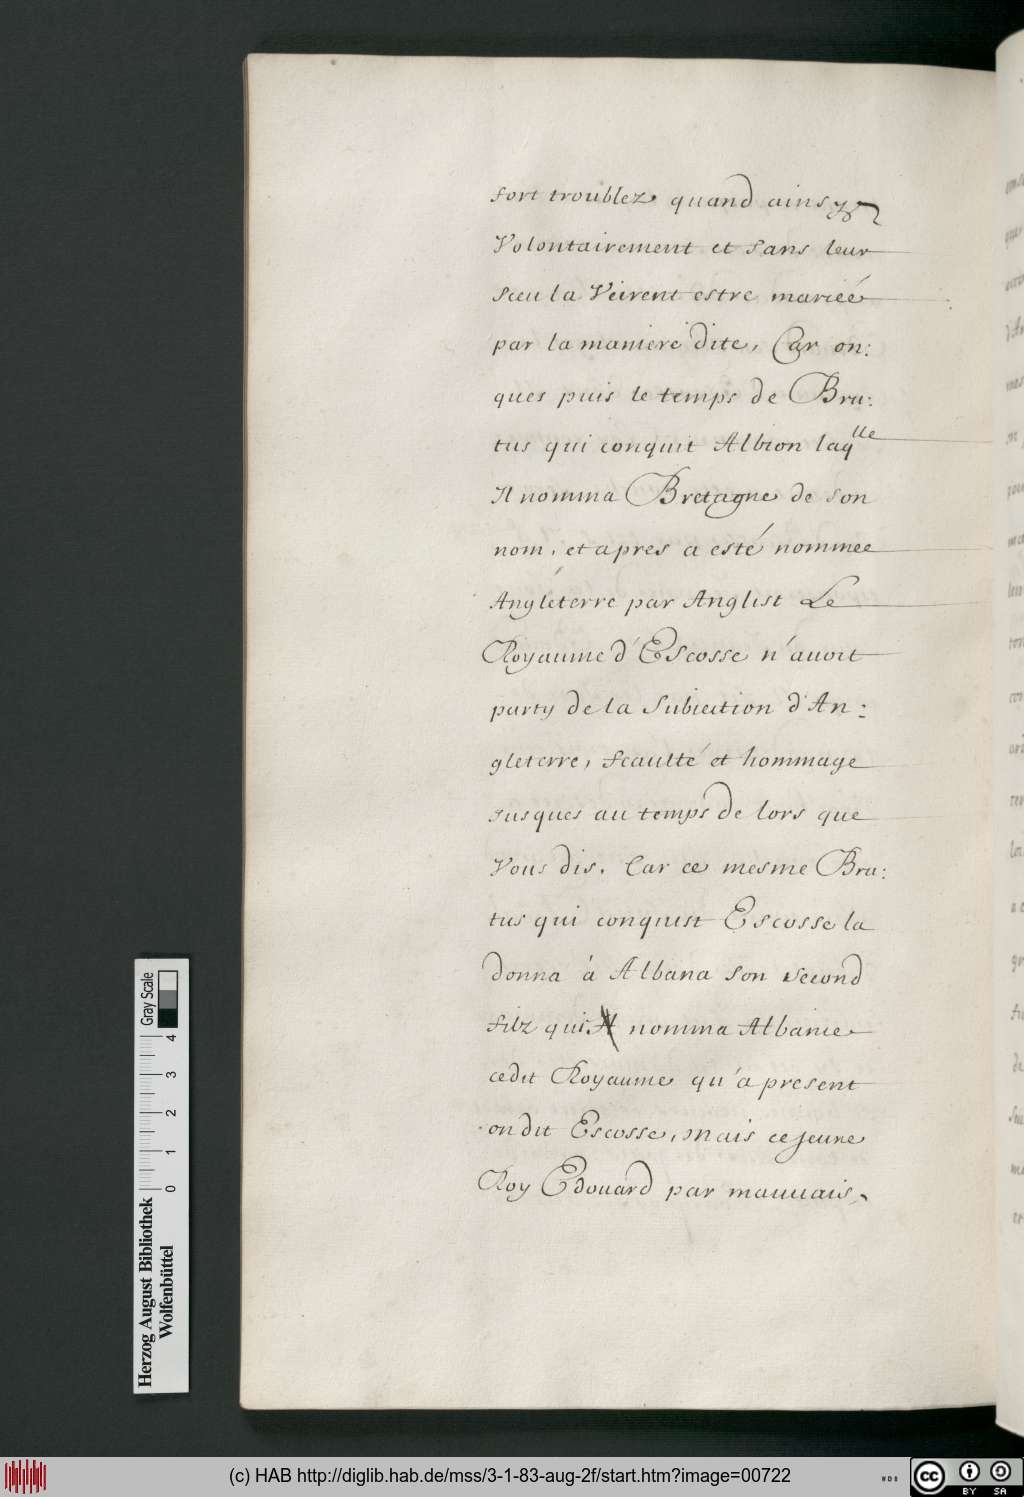 fort troublez quand ainsy
Volontairement et sans leur
sceu la Veirent estre marieé
par la maniere dite, Car on:
ques puis le temps de Bru:
tus qui conquit Albion laqlle
Il nomma Bretagne de son
nom, et apres a esté nommee
Angléterre par Anglist Le
Royaume d'Escosse n'auoit
party de la Subiection d'An:
gleterre, feaulté et hommage
jusques au temps de lors que
Vous dis. Car ce mesme Bru:
tus qui conquist Escosse la
donna à Albana son second
filz qui nomma Albanie
cedit Royaume qu'a present
on dit Escosse, mais ce jeune
Roy Edouard par mauuais,
Herzog August Bibliothek
Wolfenbüttel
0 1 2 3 4
Gray Scale
(c) HAB http://diglib.hab.de/mss/3-1-83-aug-2f/start.htm?image=00722
WDB
cc BY SA